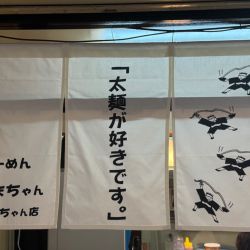 「太麺が好きです。」
ーめん
まちゃん
ちゃん店